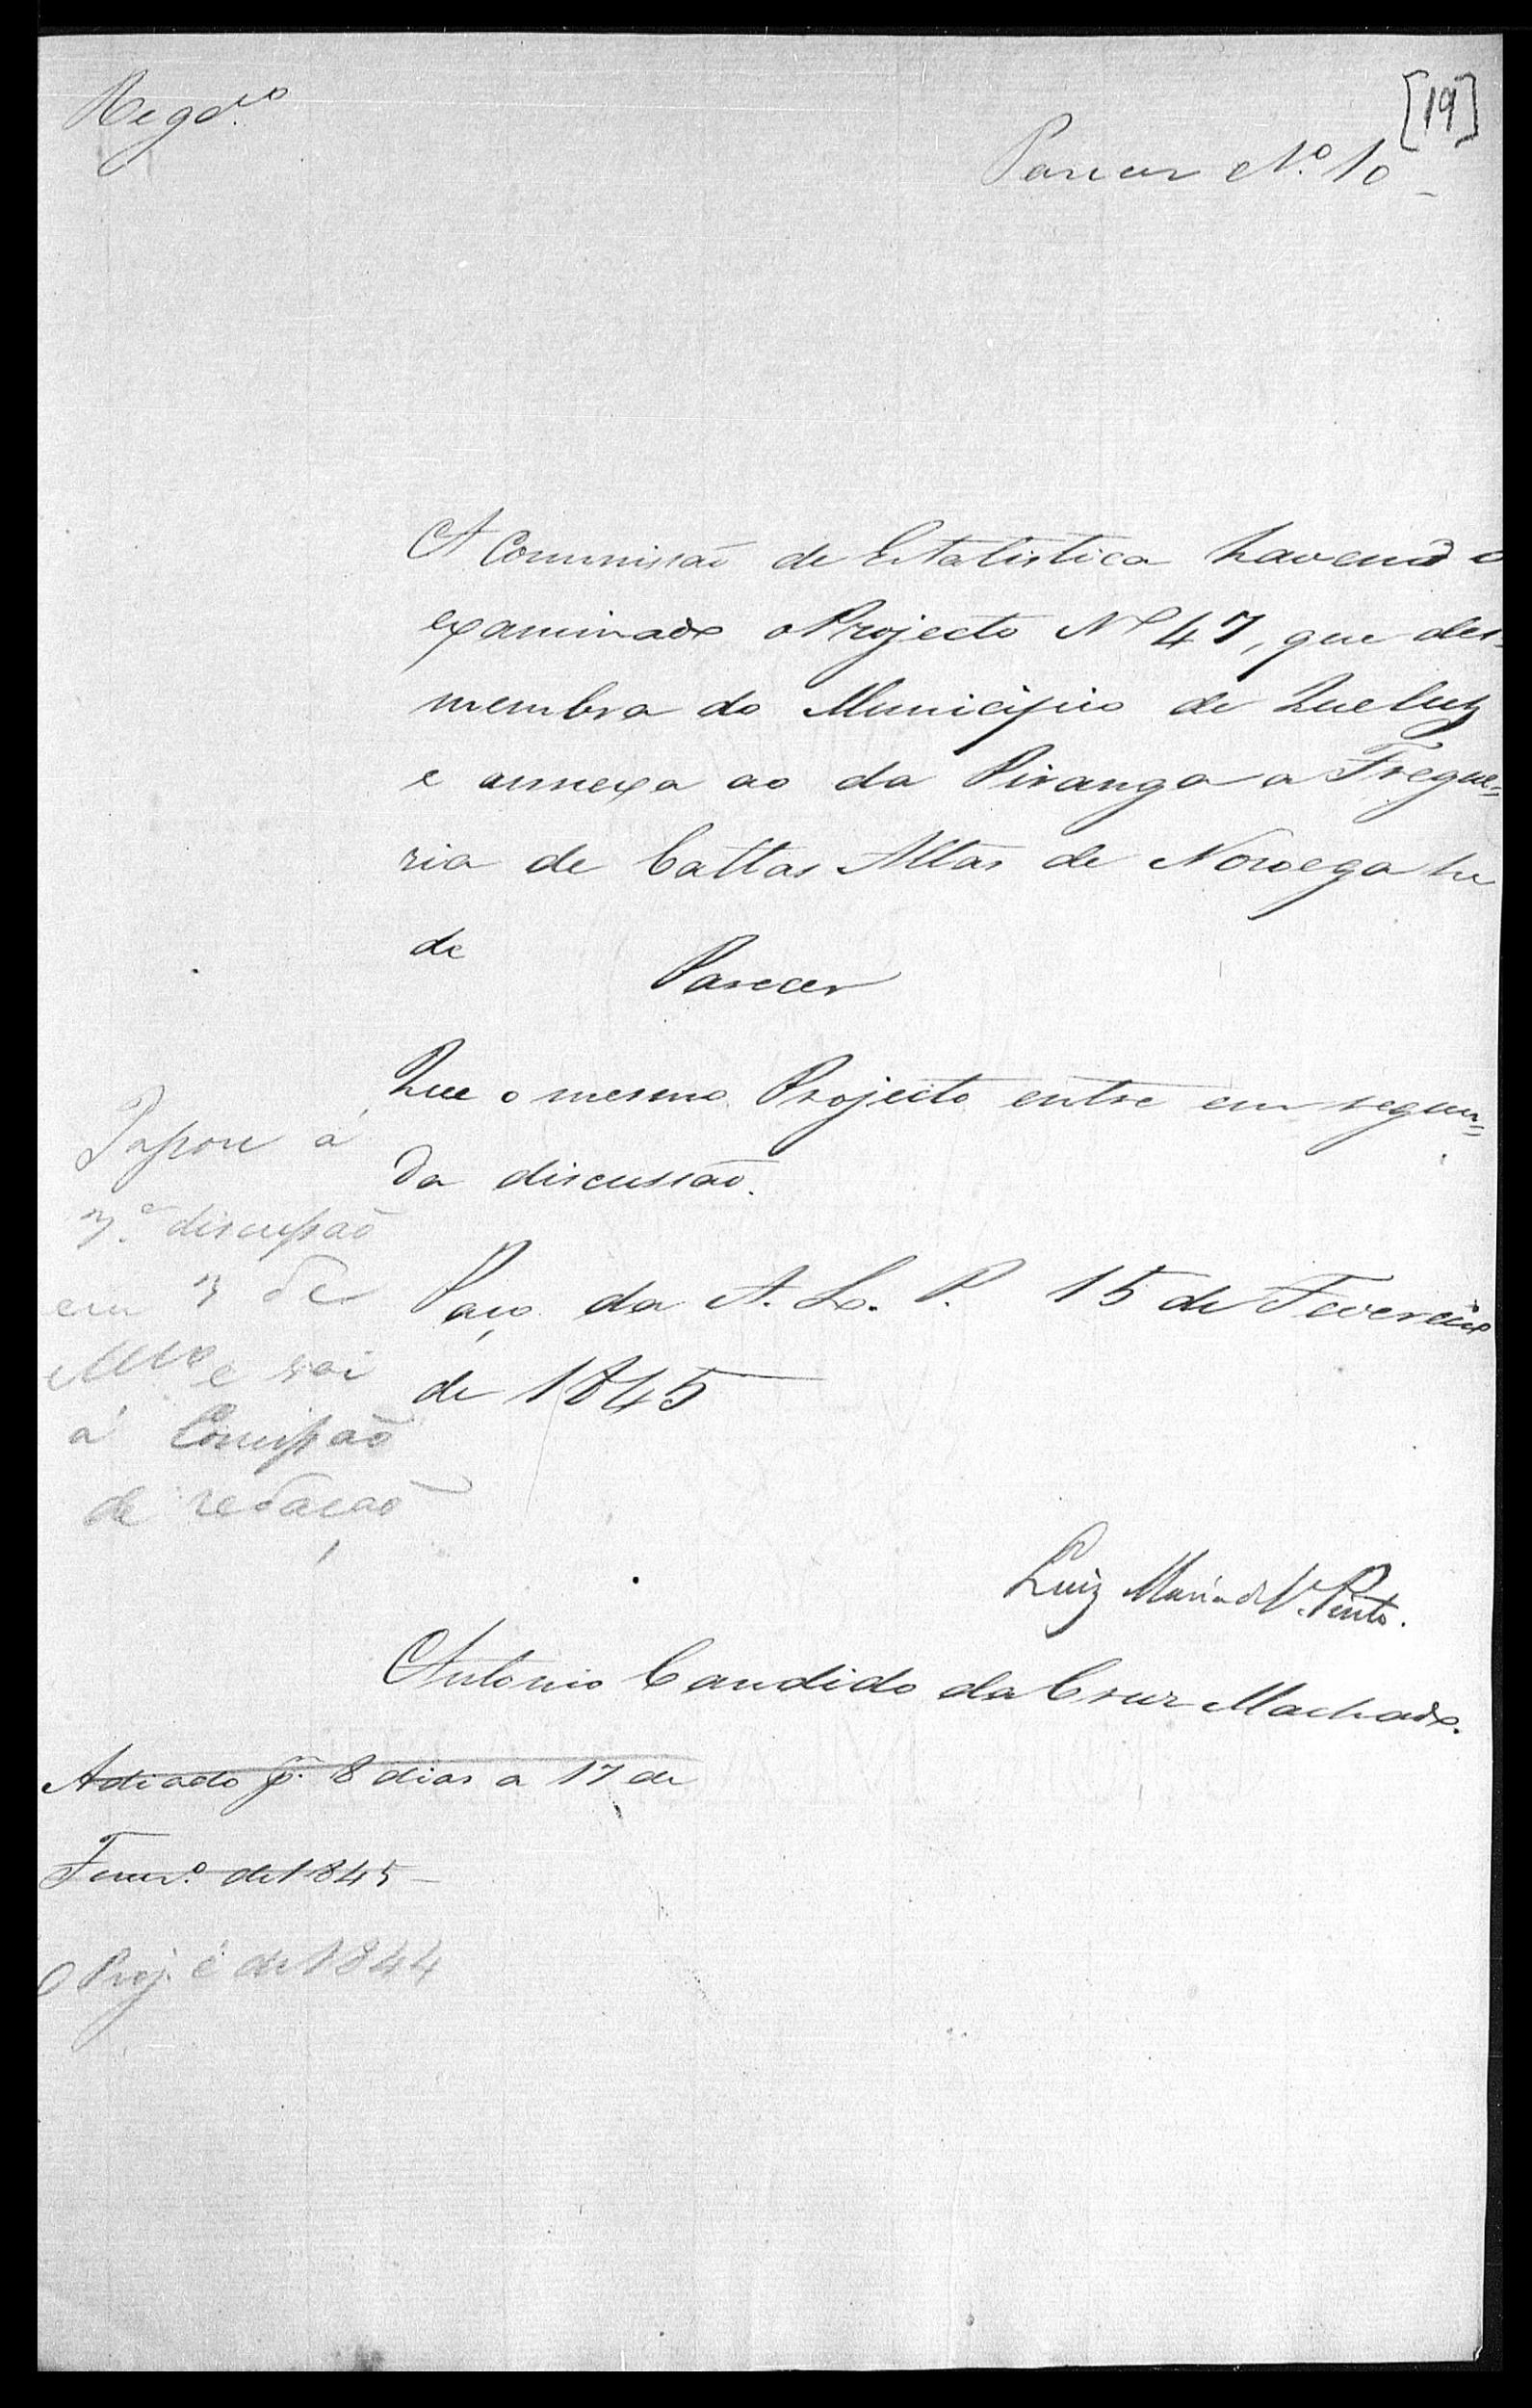 Regdo
[19]
Parecer No. 10
A Commissão de Estatistica havendo
examinado o Projecto No 47, que des-
membra do Municipio de Queluz
e annexa ao da Piranga a Fregue=
sia de Cattas Altas de Noroega he
de
Parecer
Que o mesmo Projecto entre em segun=
da discussão.
Paço da A. L. P. 15 de Fevereiro
de 1845
Luiz Maria da S. Pinto.
Antonio Candido da Cruz Machado.
Passou á
3.a discussão
em 3 de
Mço e vai
á Comissão
de redacção
Adiado p.r 8 dias a 17 de
Fever.o de 1845
O Proj. é de 1844